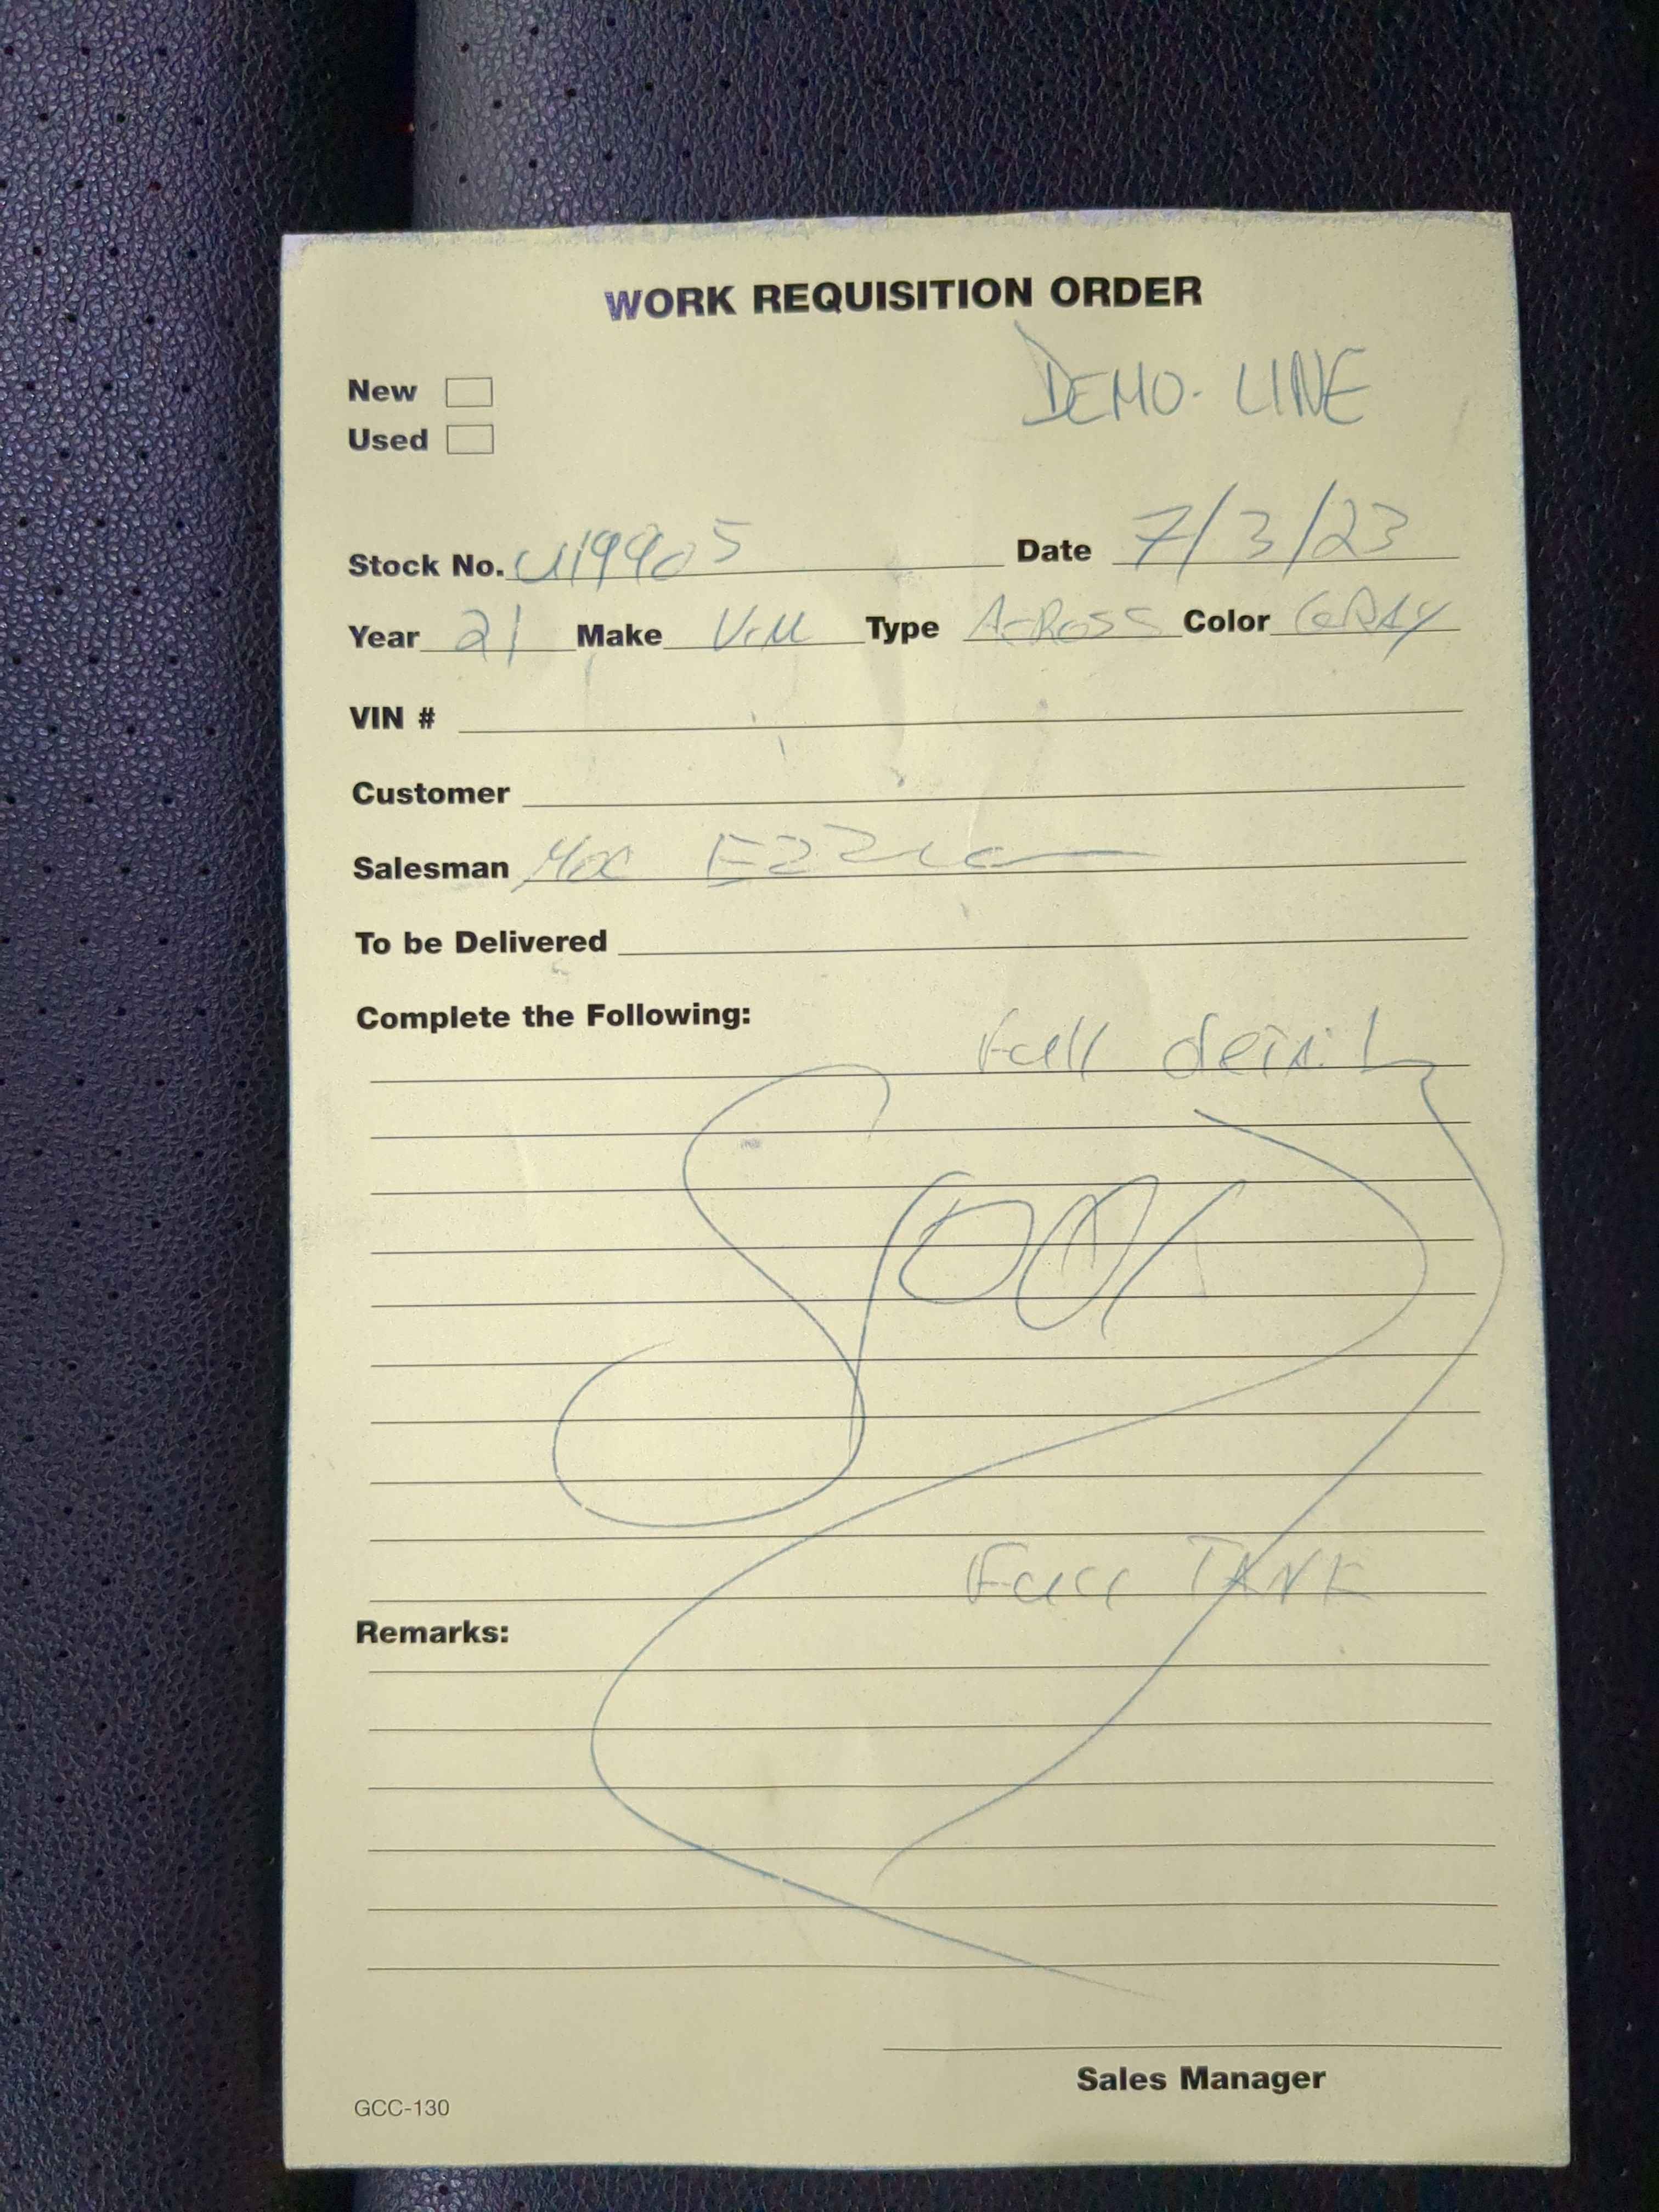 WORK REQUISITION ORDER
New
DEMO-LINE
Used
Stock No. U19905 Date 7/3/23
Year 21 Make V.W Type Color GRAY
VIN #
Customer
Salesman
To be Delivered
Complete the Following:
Full detail
Full TANK
Remarks:
Sales Manager
GCC-130